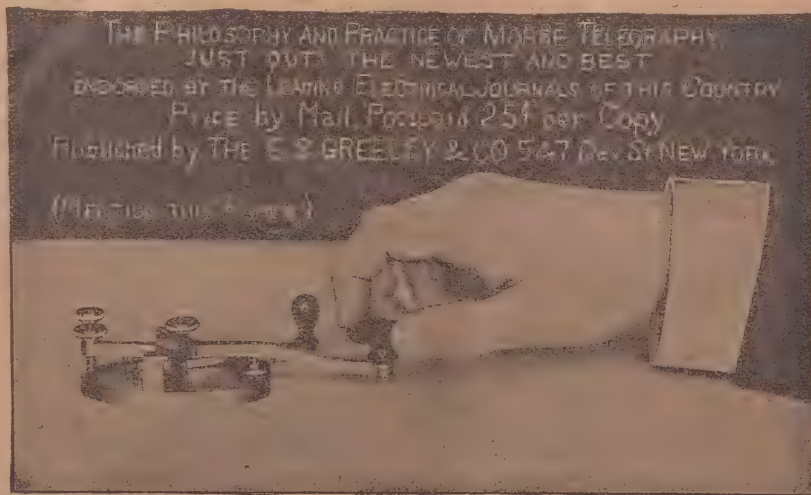 THE PHILOSOPHY AND PRACTICE OF MORSE TELEGRAPHY.
JUST OUT! THE NEWEST AND BEST
ENDORSED BY THE LEADING ELECTRICAL JOURNALS OF THIS COUNTRY
Price by Mail, Postpaid 25¢ per Copy
Published by THE E. S. GREELEY & CO 5 & 7 Dey St NEW YORK
(MENTION THIS PAPER)